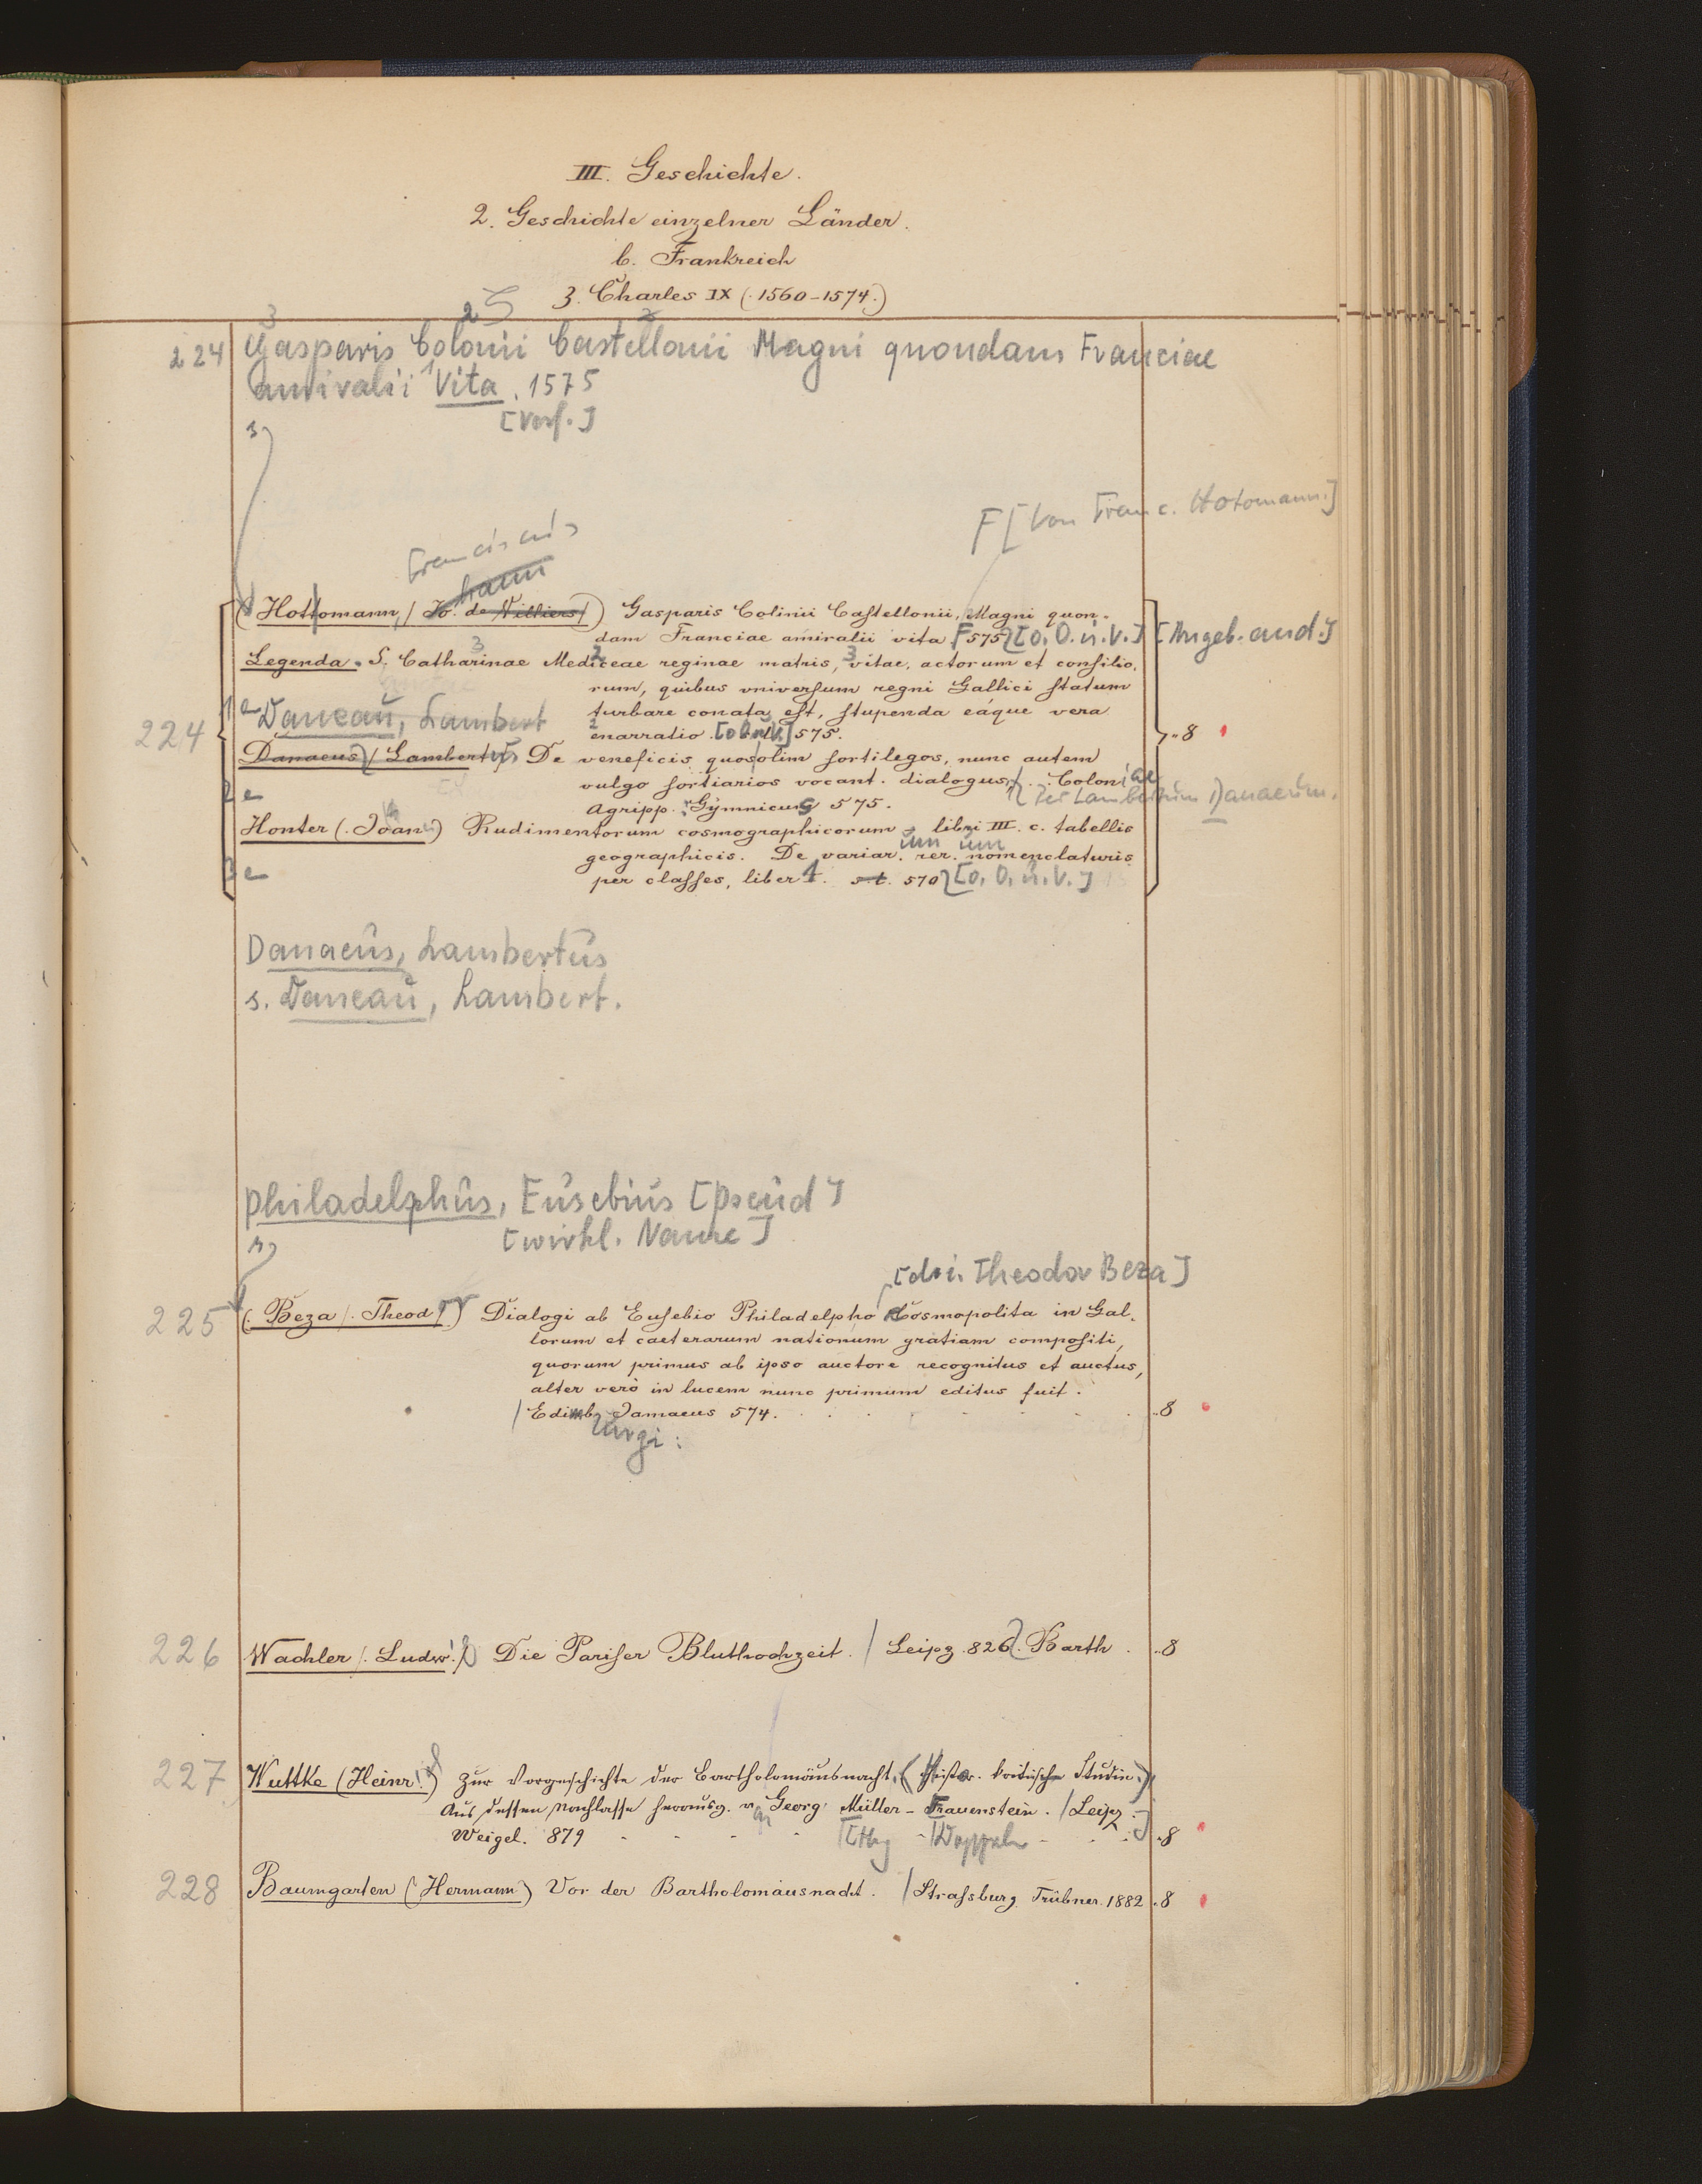 III. Geschichte.
2. Geschichte einzelner Länder.
b. Frankreich
3. Charles IX (1560-1574.)
224 Gasparis Colonii Castellonii Magni quondam Franciae
amiralii Vita. 1575
[Verf.]
F [Von Franc. Hotomann.]
Franciscus
(Hottomann, / Jo. de Villiers/) Gasparis Colinii Castellonii, Magni quon-
dam Franciae amiralii vita 575 [O. O. u. V.] [Angeb. and.]
Legenda. S. Catharinae Mediceae reginae matris, vitae, actorum et consilio-
rum, quibus universum regni Gallici statum
1e Daneau, Lambert turbare conata est, stupenda eáque vera
224 enarratio. [O. O. u. V.] 575. ..8
Danaeus / Lambertus De veneficis quos olim sortilegos, nunc autem
vulgo sortiarios vocant. dialogus. Coloniae
2e Agripp.: Gymnicus 575. [Per Lambertum Danaeum.
Honter (Joan) Rudimentorum cosmographicorum libri III. c. tabellis
geographicis. De variarum rerum nomenclaturis
3e per classes, liber 1. s. t. 570 [O. O. u. V.]
Danaeus, Lambertus
s. Daneau, Lambert.
Philadelphus, Eusebius [Pseud]
[wirkl. Name]
[d. i. Theodor Beza]
225 (Beza /. Theod.) Dialogi ab Eusebio Philadelpho Cosmopolita in Gal-
lorum et caeterarum nationum gratiam compositi,
quorum primus ab ipso auctore recognitus et auctus,
alter verò in lucem nunc primum editus fuit.
/ Edimb Jamaeus 574. ..8
urgi:
226 Wachler /. Ludw. Die Pariser Bluthochzeit. / Leipz. 826. Barth. ..8
227 Wuttke (Heinr.) Zur Vorgeschichte der Bartholomäusnacht. (Histor. kritische Studie.)
Aus dessen Nachlasse herausg. v. Georg Müller-Frauenstein. / Leipz.
Weigel. 879 ..8
228 Baumgarten (Hermann) Vor der Bartholomäusnacht. / Strassburg Trübner. 1882 .8